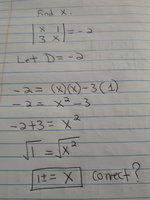 Find x.
|x 1|
|3 x| = -2
Let D = -2
-2 = (x)(x) - 3(1)
-2 = x² - 3
-2+3 = x²
√1 = √x²
1± = x correct?